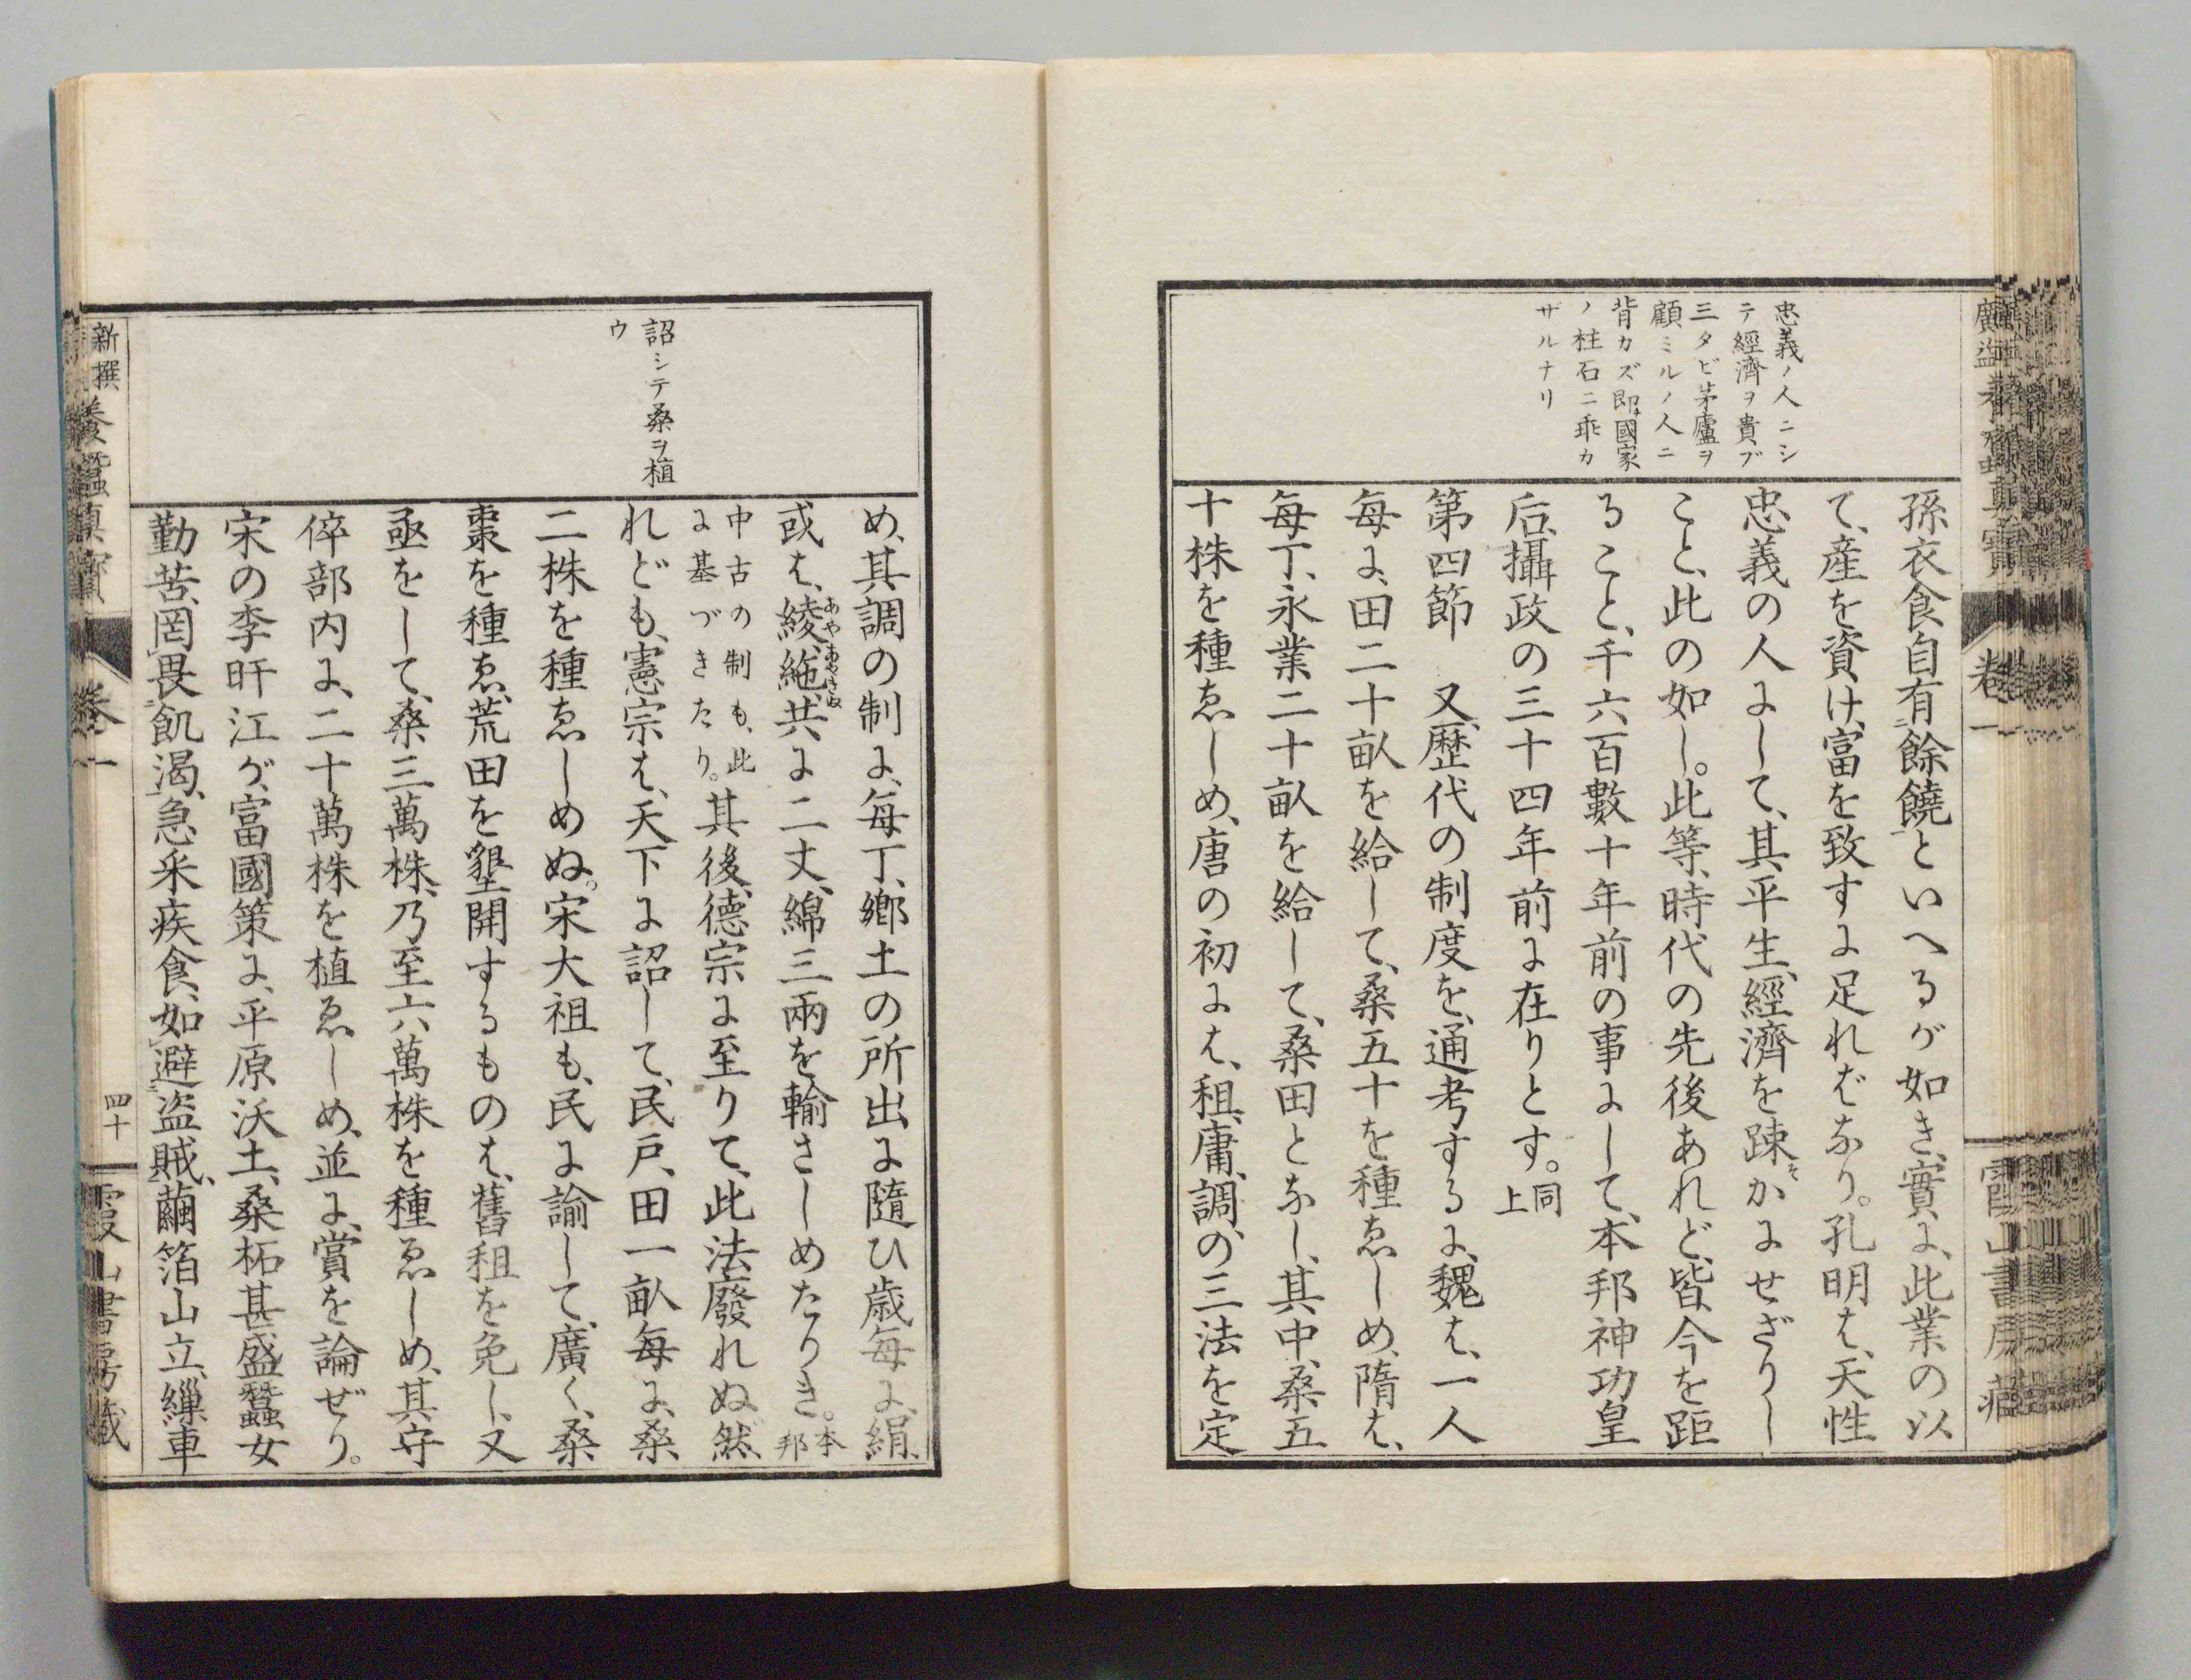 忠義ノ人ニシ
テ經濟ヲ貴ブ
三タビ茅廬ヲ
顧ミルノ人ニ
背カズ即國家
ノ柱石ニ乖カ
ザルナリ
孫衣食自有餘饒といへるが如き、實に、此業の以
て、産を資け、富を致すに足れバなり。孔明は、天性
忠義の人にして、其平生、經濟を踈かにせざりし
こと、此の如し。此等、時代の先後あれど、皆、今を距
ること、千六百數十年前の事にして、本邦神功皇
后、攝政の三十四年前に在りとす。同上
第四節　又、歴代の制度を、通考するに、魏は、一人
毎に、田二十畝を給して、桑五十を種ゑしめ、隋は、
毎丁、永業二十畝を給して、桑田となし、其中、桑五
十株を種ゑしめ、唐の初には、租、庸、調、の三法を定
詔シテ桑ヲ植
ウ
め、其調の制に、毎丁、郷土の所出に隨ひ歳毎に、絹、
或は、綾、絁、共に二丈、綿三兩を輸さしめたりき。本邦
中古の制も、此に基づきたり。其後、德宗に至りて、此法廢れぬ然
れども、憲宗は、天下に詔して、民戸、田一畝毎に、桑
二株を種ゑしめぬ。宋大祖も、民に諭して、廣く、桑
棗を種ゑ、荒田を墾開するものは、舊租を免し、又
亟をして、桑三萬株、乃至六萬株を種ゑしめ、其守
倅部内に、二十萬株を植ゑしめ、並に、賞を論ぜり。
宋の李旰江が、富國策に、平原沃土、桑柘甚盛、蠶女
勤苦、罔畏飢渴、急采疾食、如避盜賊、繭箔山立、繅車
新撰養蠶眞寶
卷一
四十
霞山書房藏